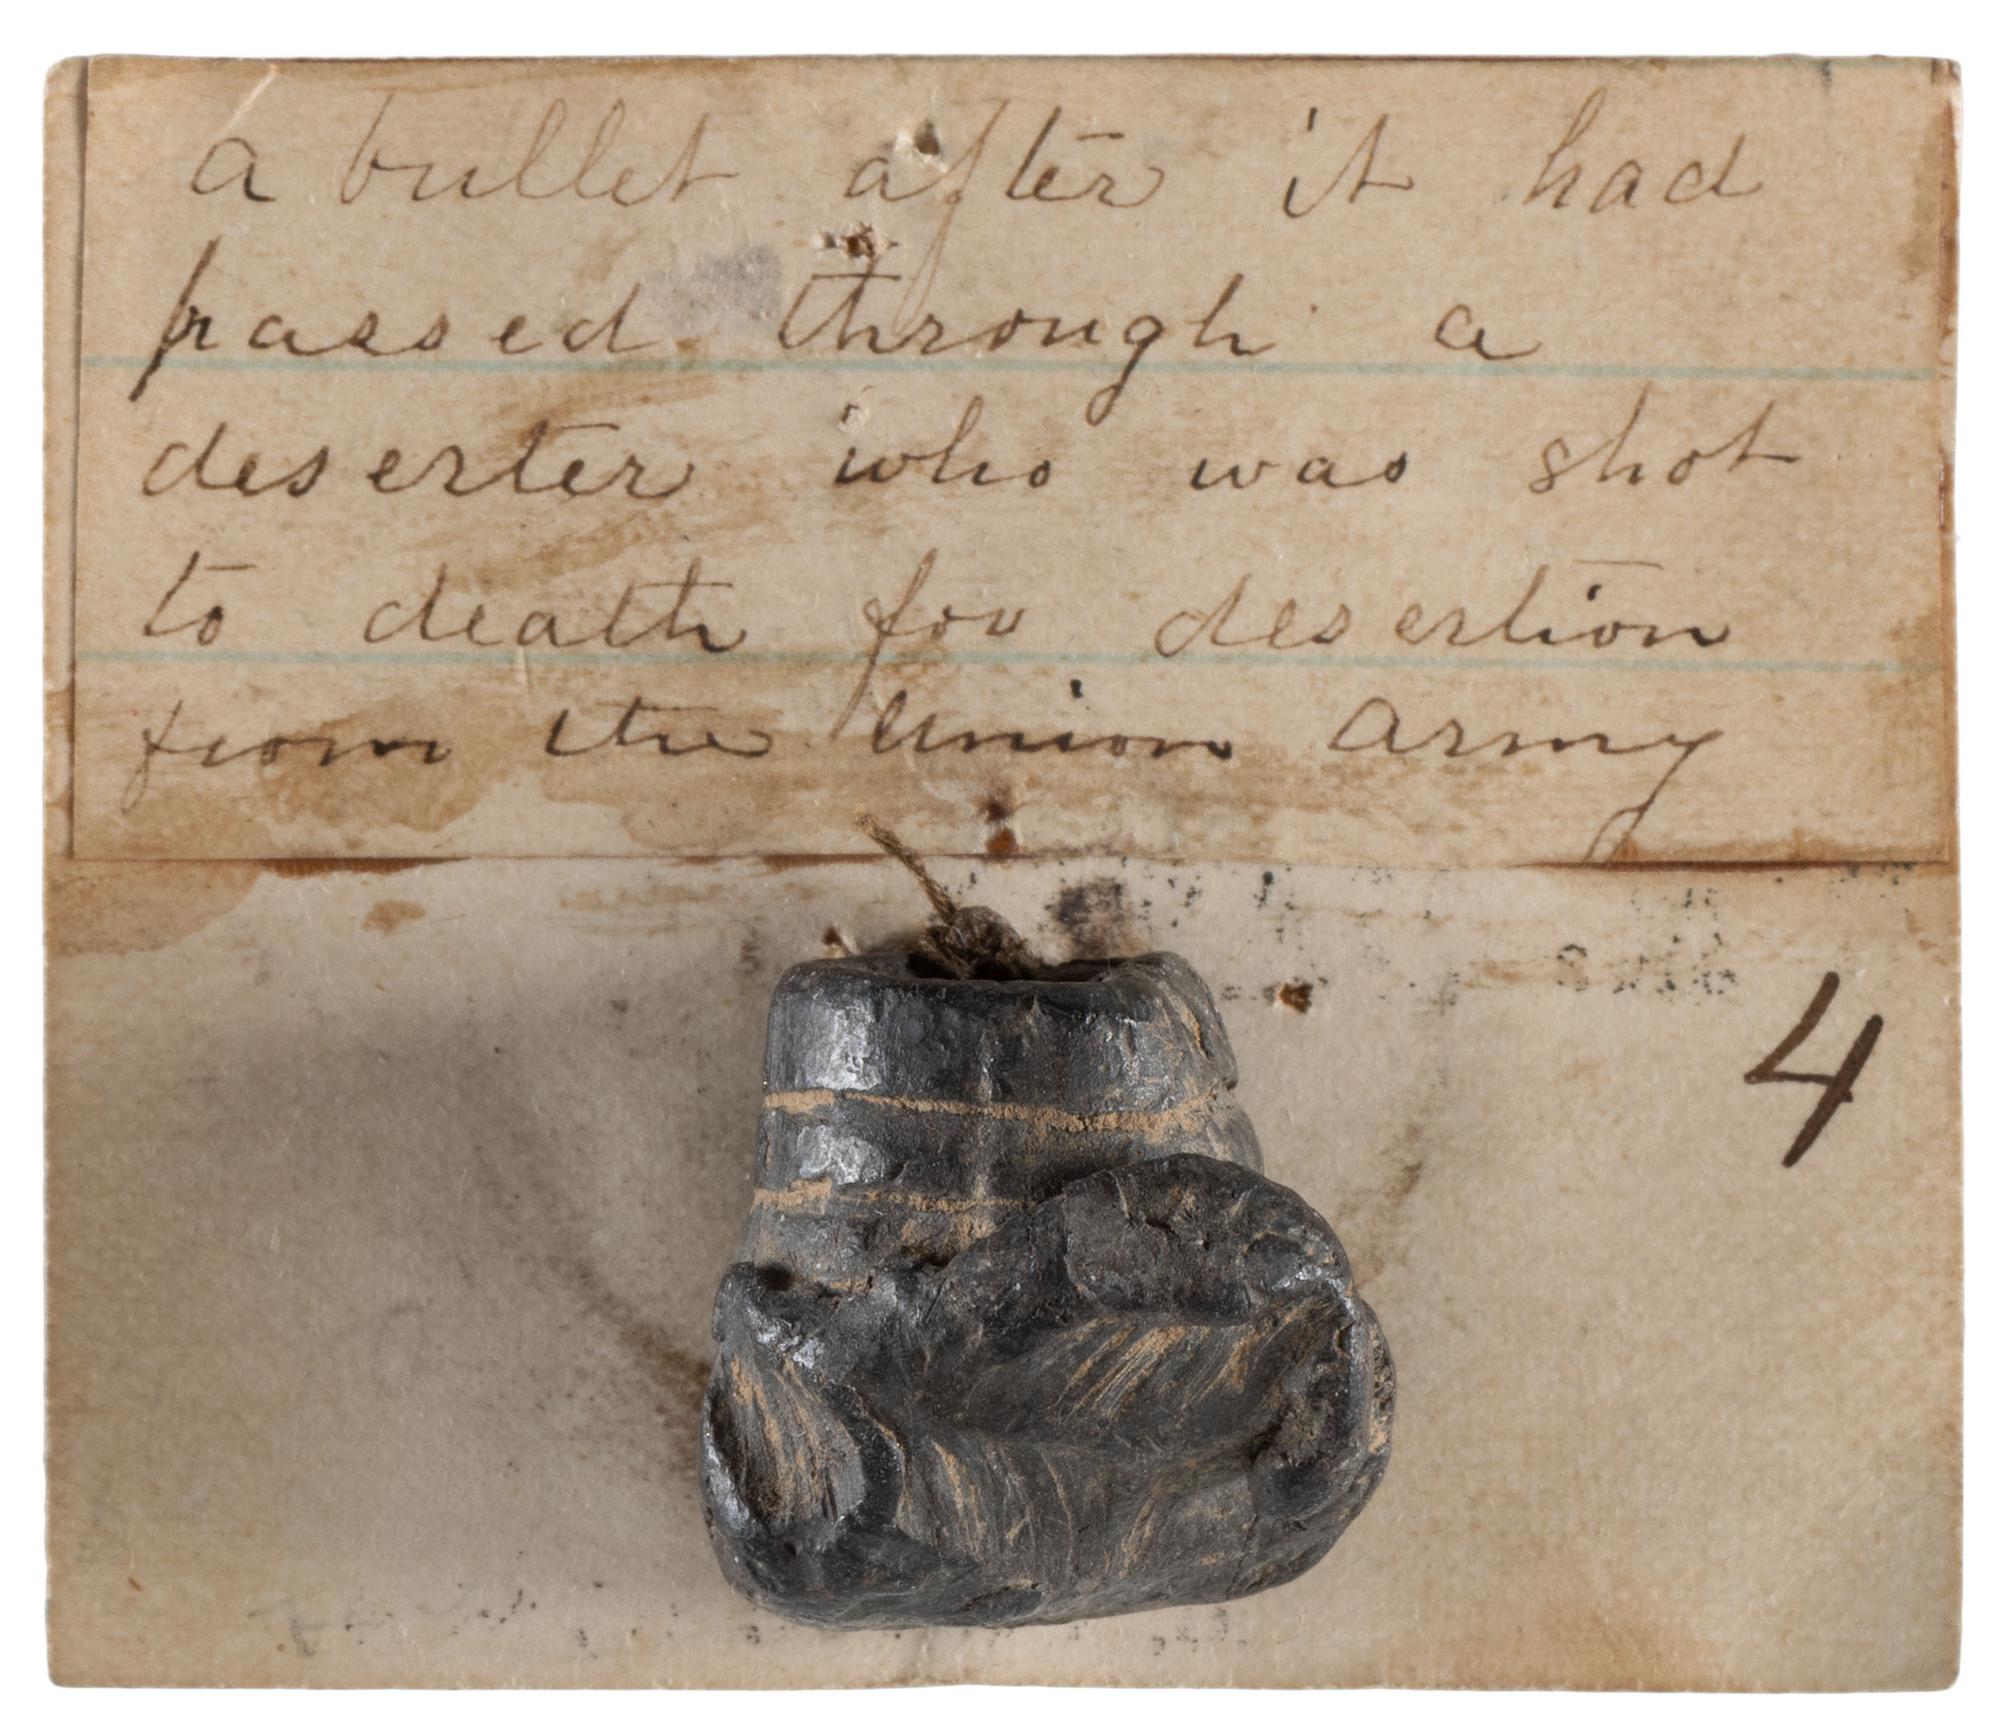 a bullet after it had
passed through a
deserter who was shot
to death for desertion
from the Union Army
4